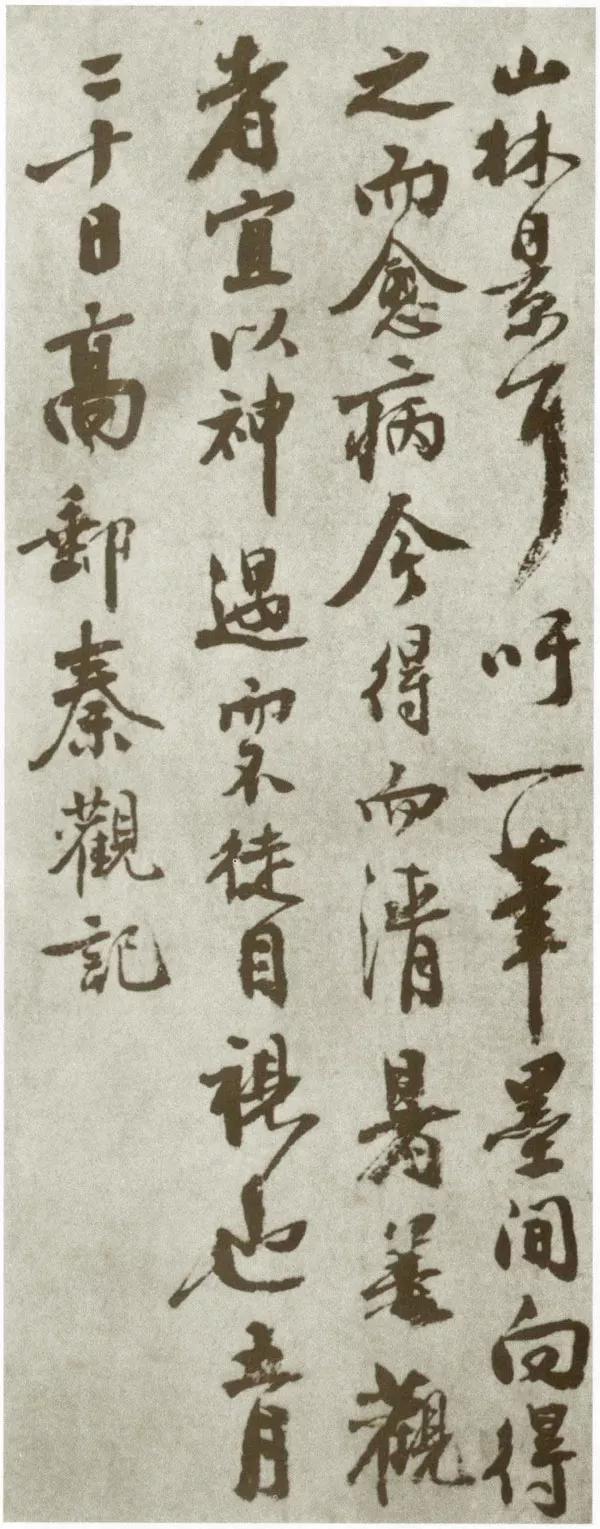 山林景耳吁一筆墨間向得
之而愈病今得而清暑盖觀
者宜以神遇而不徒目視也五月
二十日高郵秦觀記